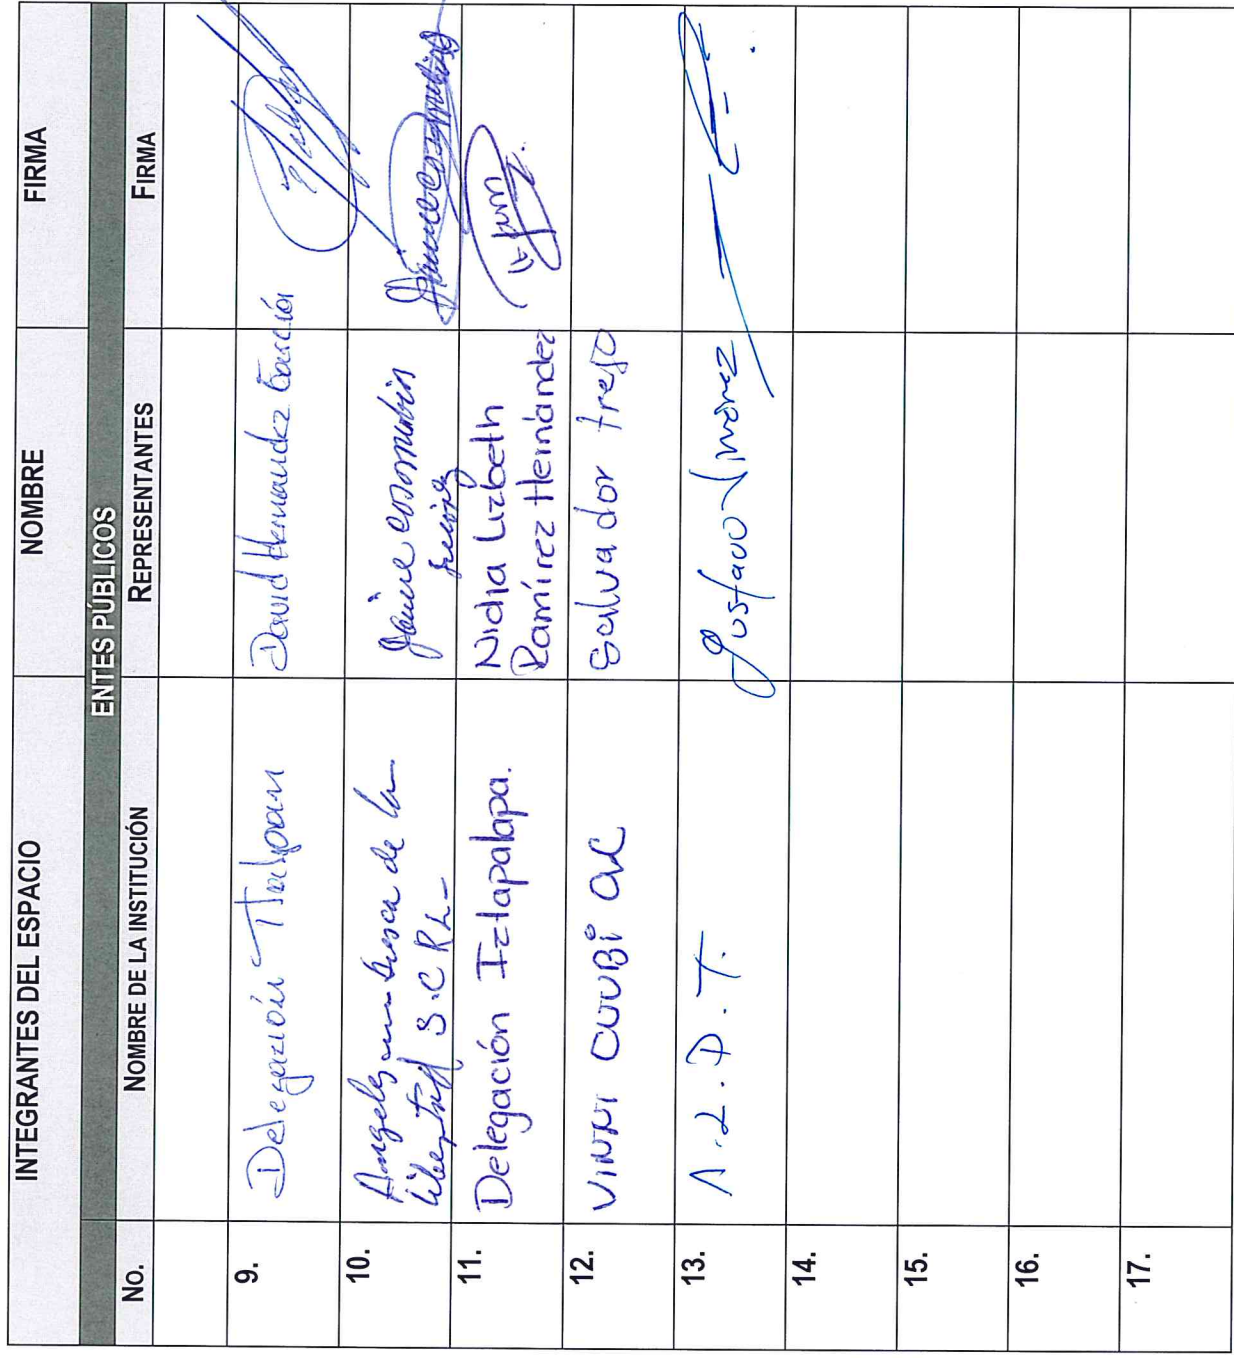 INTEGRANTES DEL ESPACIO NOMBRE FIRMA
ENTES PÚBLICOS
No. NOMBRE DE LA INSTITUCIÓN REPRESENTANTES FIRMA
9. Delegación Tlalpan David Hernandez García
10. Angeles en busca de la Jaime
libertad S.C RL-
11. Delegación Iztapalapa. Nidia Lizbeth
Ramírez Hernández
12. VINNI CUUBI AC Salvador trejo
13. A.L.D.T. Gustavo Jimenez
14.
15.
16.
17.